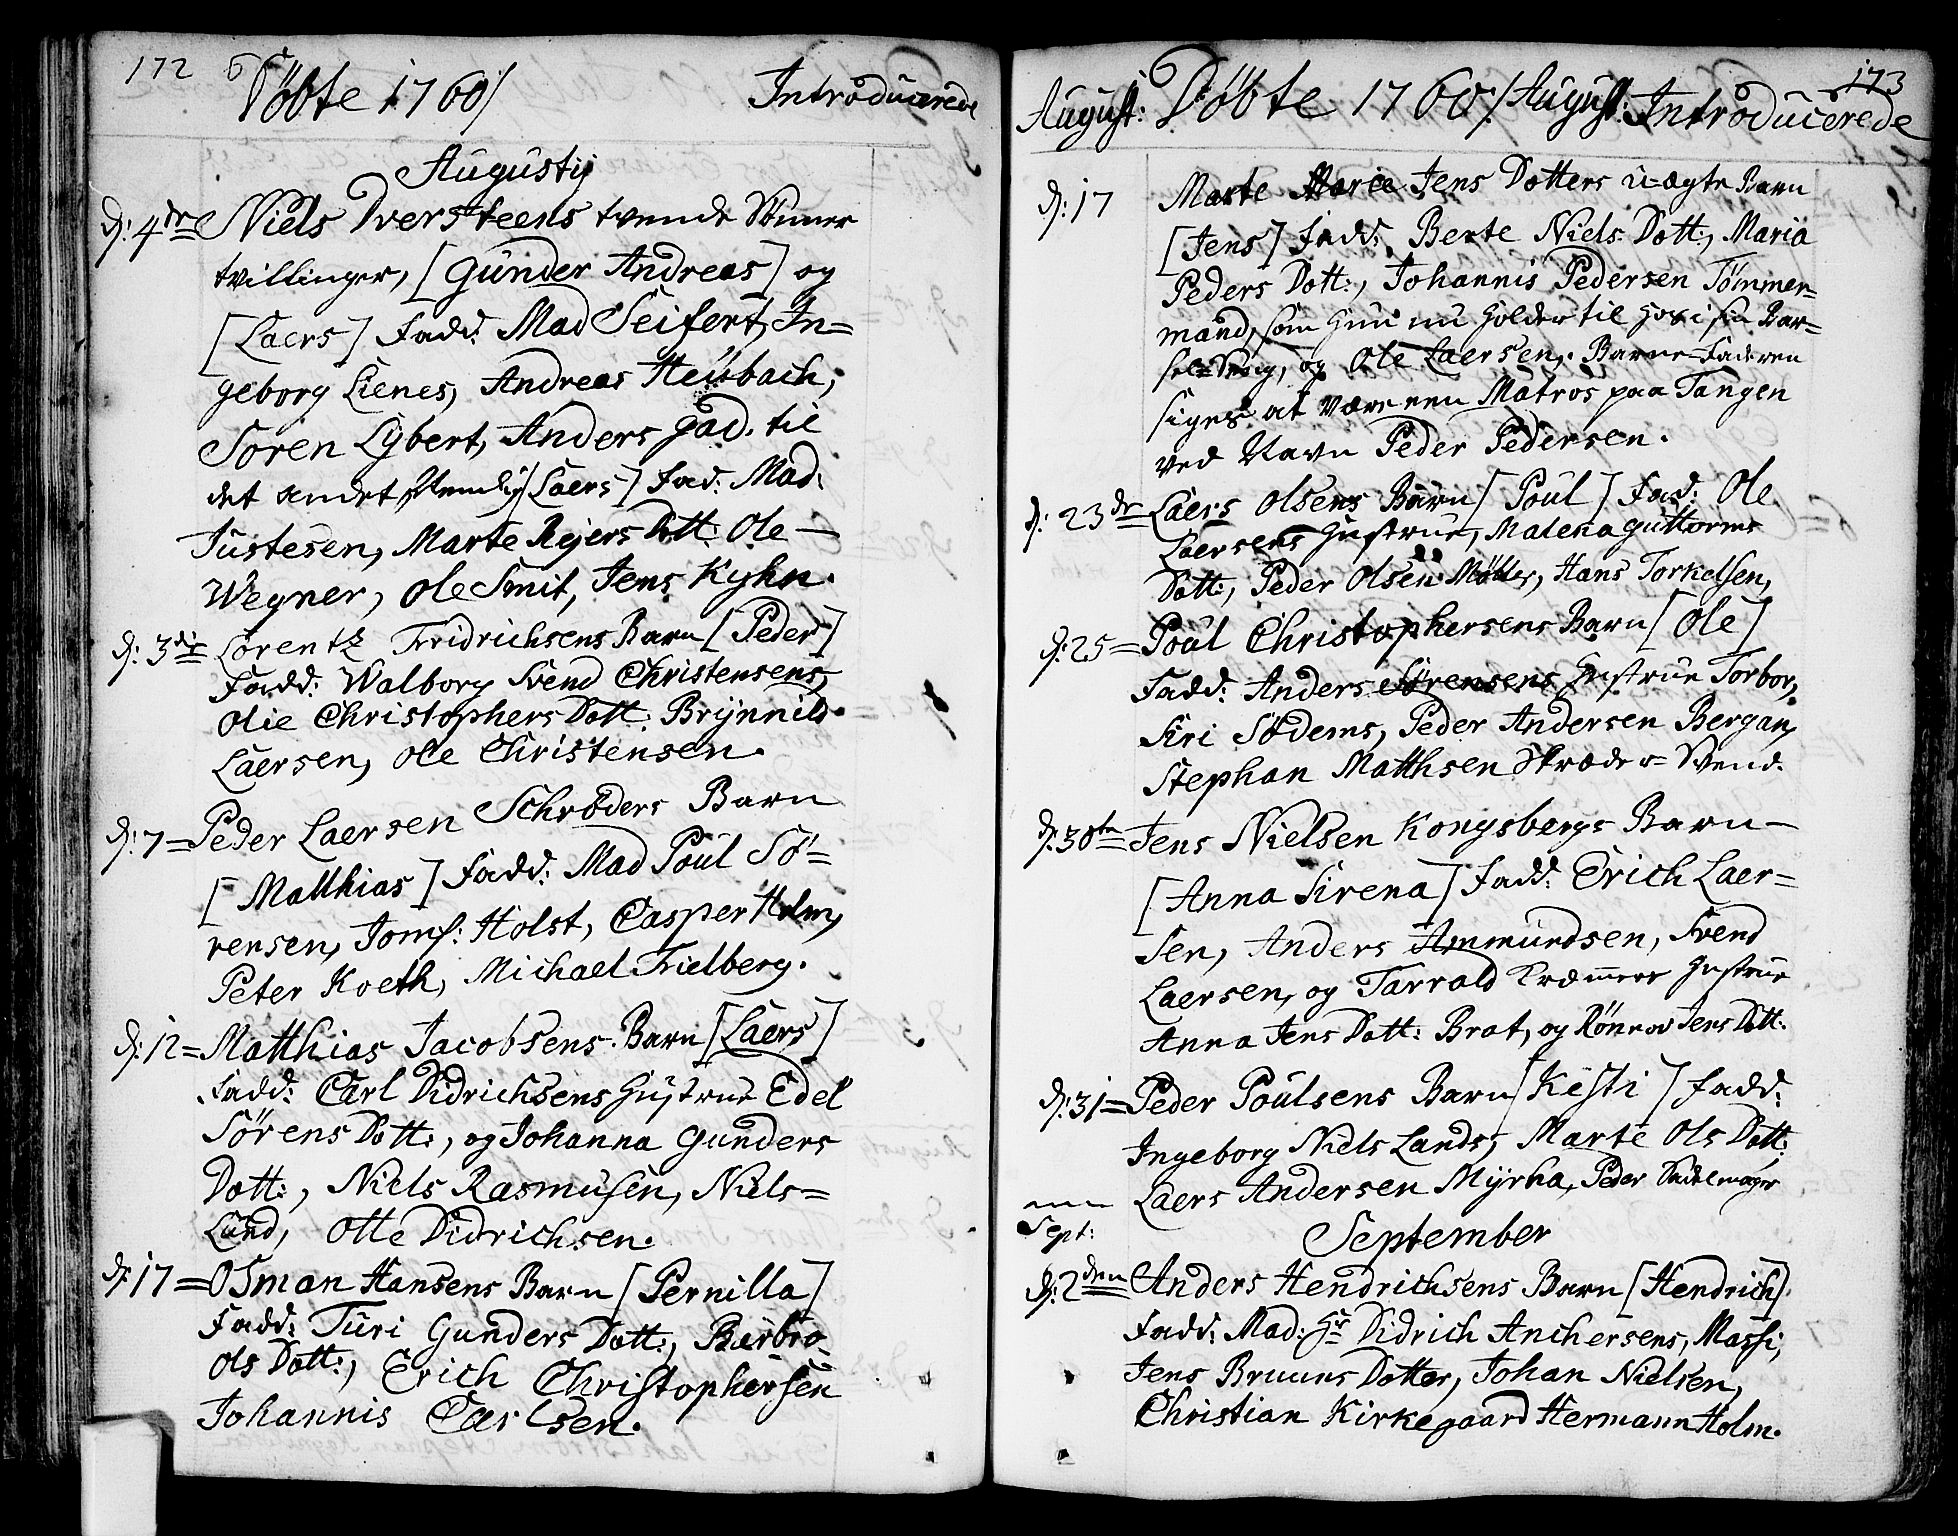 172 Döbte 1760/ Introducerede
Augustij
d: 4de Niels Dversteens tvende Sönner
tvillinger, [Gunder Andreas] og
[Laers] Fadd: Mad Seifert, In=
geborg Lienes, Andreas Heübach,
Sören Lybert, Anders Gad. til
det andet Nemlig [Laers] Fad: Mad:
Justesen, Marte Rejers Dott: Ole
Wegner, Ole Smit, Jens Kyhn.
d: 3die Lorentz Fridrichsens Barn [Peder]
Fadd: Walborg Svend Christensens,
Olie Christophers Dott: Brÿnnild
Laersen, Ole Christensen.
d: 7= Peder Laersen Schröders Barn
[Matthias] Fadd: Mad Poül Sö=
rensen, Jomf: Holst, Casper Holm,
Peter Koeth, Michael Frielberg.
d: 12= Matthias Jacobsens Barn [Laers]
Fadd: Carl Didrichsens Hustrue Edel
Sörens Dott:, og Johanna Gunders
Dott:, Niels Rasmusen, Niels=
Lund, Otte Didrichsen.
d: 17= Osman Hansens Barn [Pernilla]
Fadd: Turi Gunders Dott:, Barbro
Ols Dott:, Erich Christophersen
Johannis Carlsen.
173
August: Döbte 1760/ August: Introducerede
d: 17 Marte Marie Jens Dotters u-ægte Barn
[Jens] Fadd: Berte Niels Dott:, Maria
Peders Dott:, Johannis Pedersen Tömmer=
mand, som Hun nu Holder til Hos i sin Bar=
sel-Seng, og Ole Laersen. Barne-Faderen
siges at være een Matros paa Tangen
ved Navn Peder Pedersen.
d: 23de Laers Olsens Barn [Poul] Fad: Ole
Laersens Hustrue, Malena Guttorms
Dott:, Peder Olsen Möller, Hans Torkelsen,
d: 25= Poul Christophersens Barn [Ole]
Fadd: Anders Sörensens Hustrue Torbor,
Siri Södems, Peder Andersen Bergan,
Stephan Matthsen Skræder=Svend.
d: 30te Jens Nielsen Kongsbergs Barn
[Anna Sirena] Fadd: Erich Laer=
sen, Anders Ammundsen, Svend
Laersen, og Tarrald Kræmmers Hustrue
Anna Jens Dott: Brat, og Rönnov Jens Dott:
d: 31= Peder Poulsens Barn [Kisti] Fadd:
Ingeborg Niels Lands, Marte Ols Dott:
Laers Andersen Myrha, Peder Sadelmager
Sept: September
d: 2den Anders Hendrichsens Barn [Hendrich].
Fadd: Mad: Hr Didrich Anchersens, Massi,
Jens Bruuns Dotter, Johan Nielsen,
Christian Kirkegaard Hermann Holm.